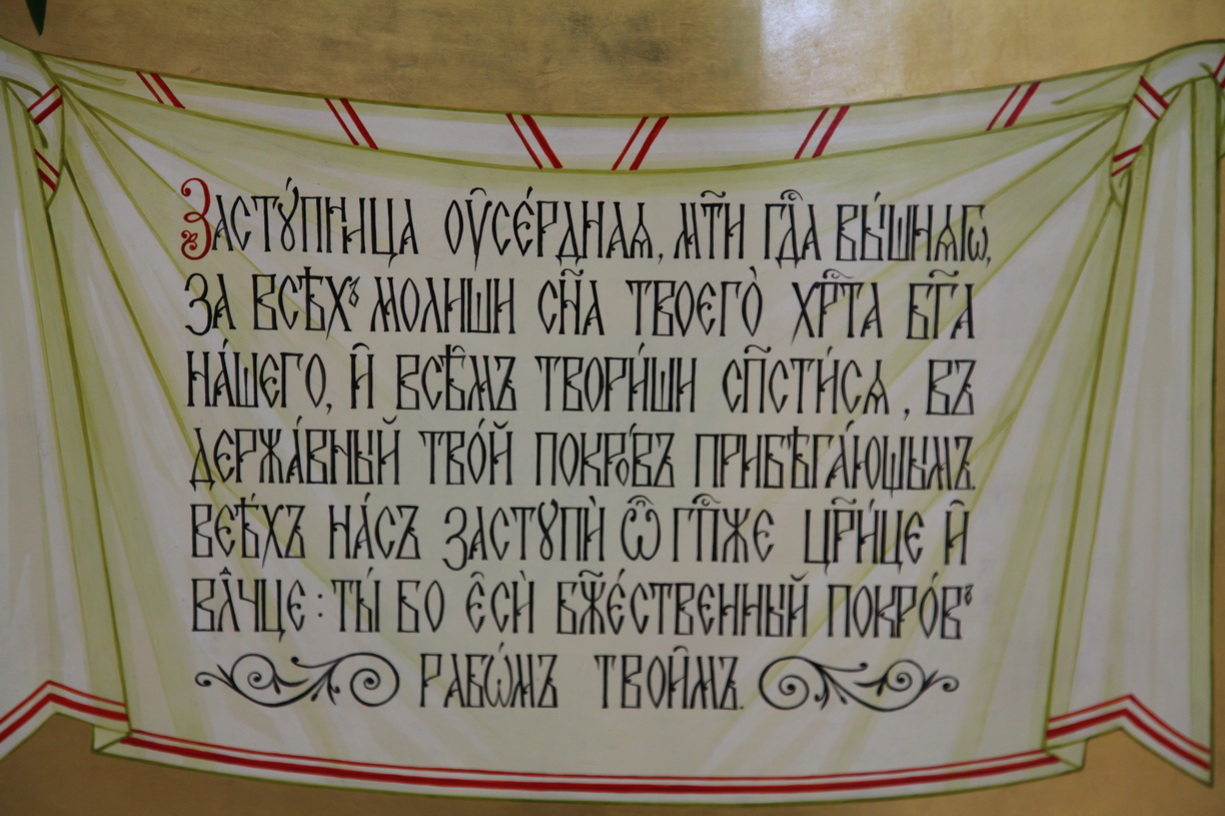 Засту́пница ᲂу҆се́рднаѧ, мт҃и гдⷭ҇а вы́шнѧгѡ,
за всѣхъ молиши сн҃а твоего̀ хрⷭ҇та̀ бг҃а
на́шего, и҆ всѣ̑мъ твори́ши сп҃сти́сѧ, въ
держа́вный тво́й покро́въ прибѣга́ющымъ.
всѣ́хъ на́съ заступѝ ѽ гпⷭ҇же цр҃и́це и҆
влⷣчце: ты́ бо є҆сѝ бж҃е́ственный покро́въ
рабѡ́мъ твои̑мъ.